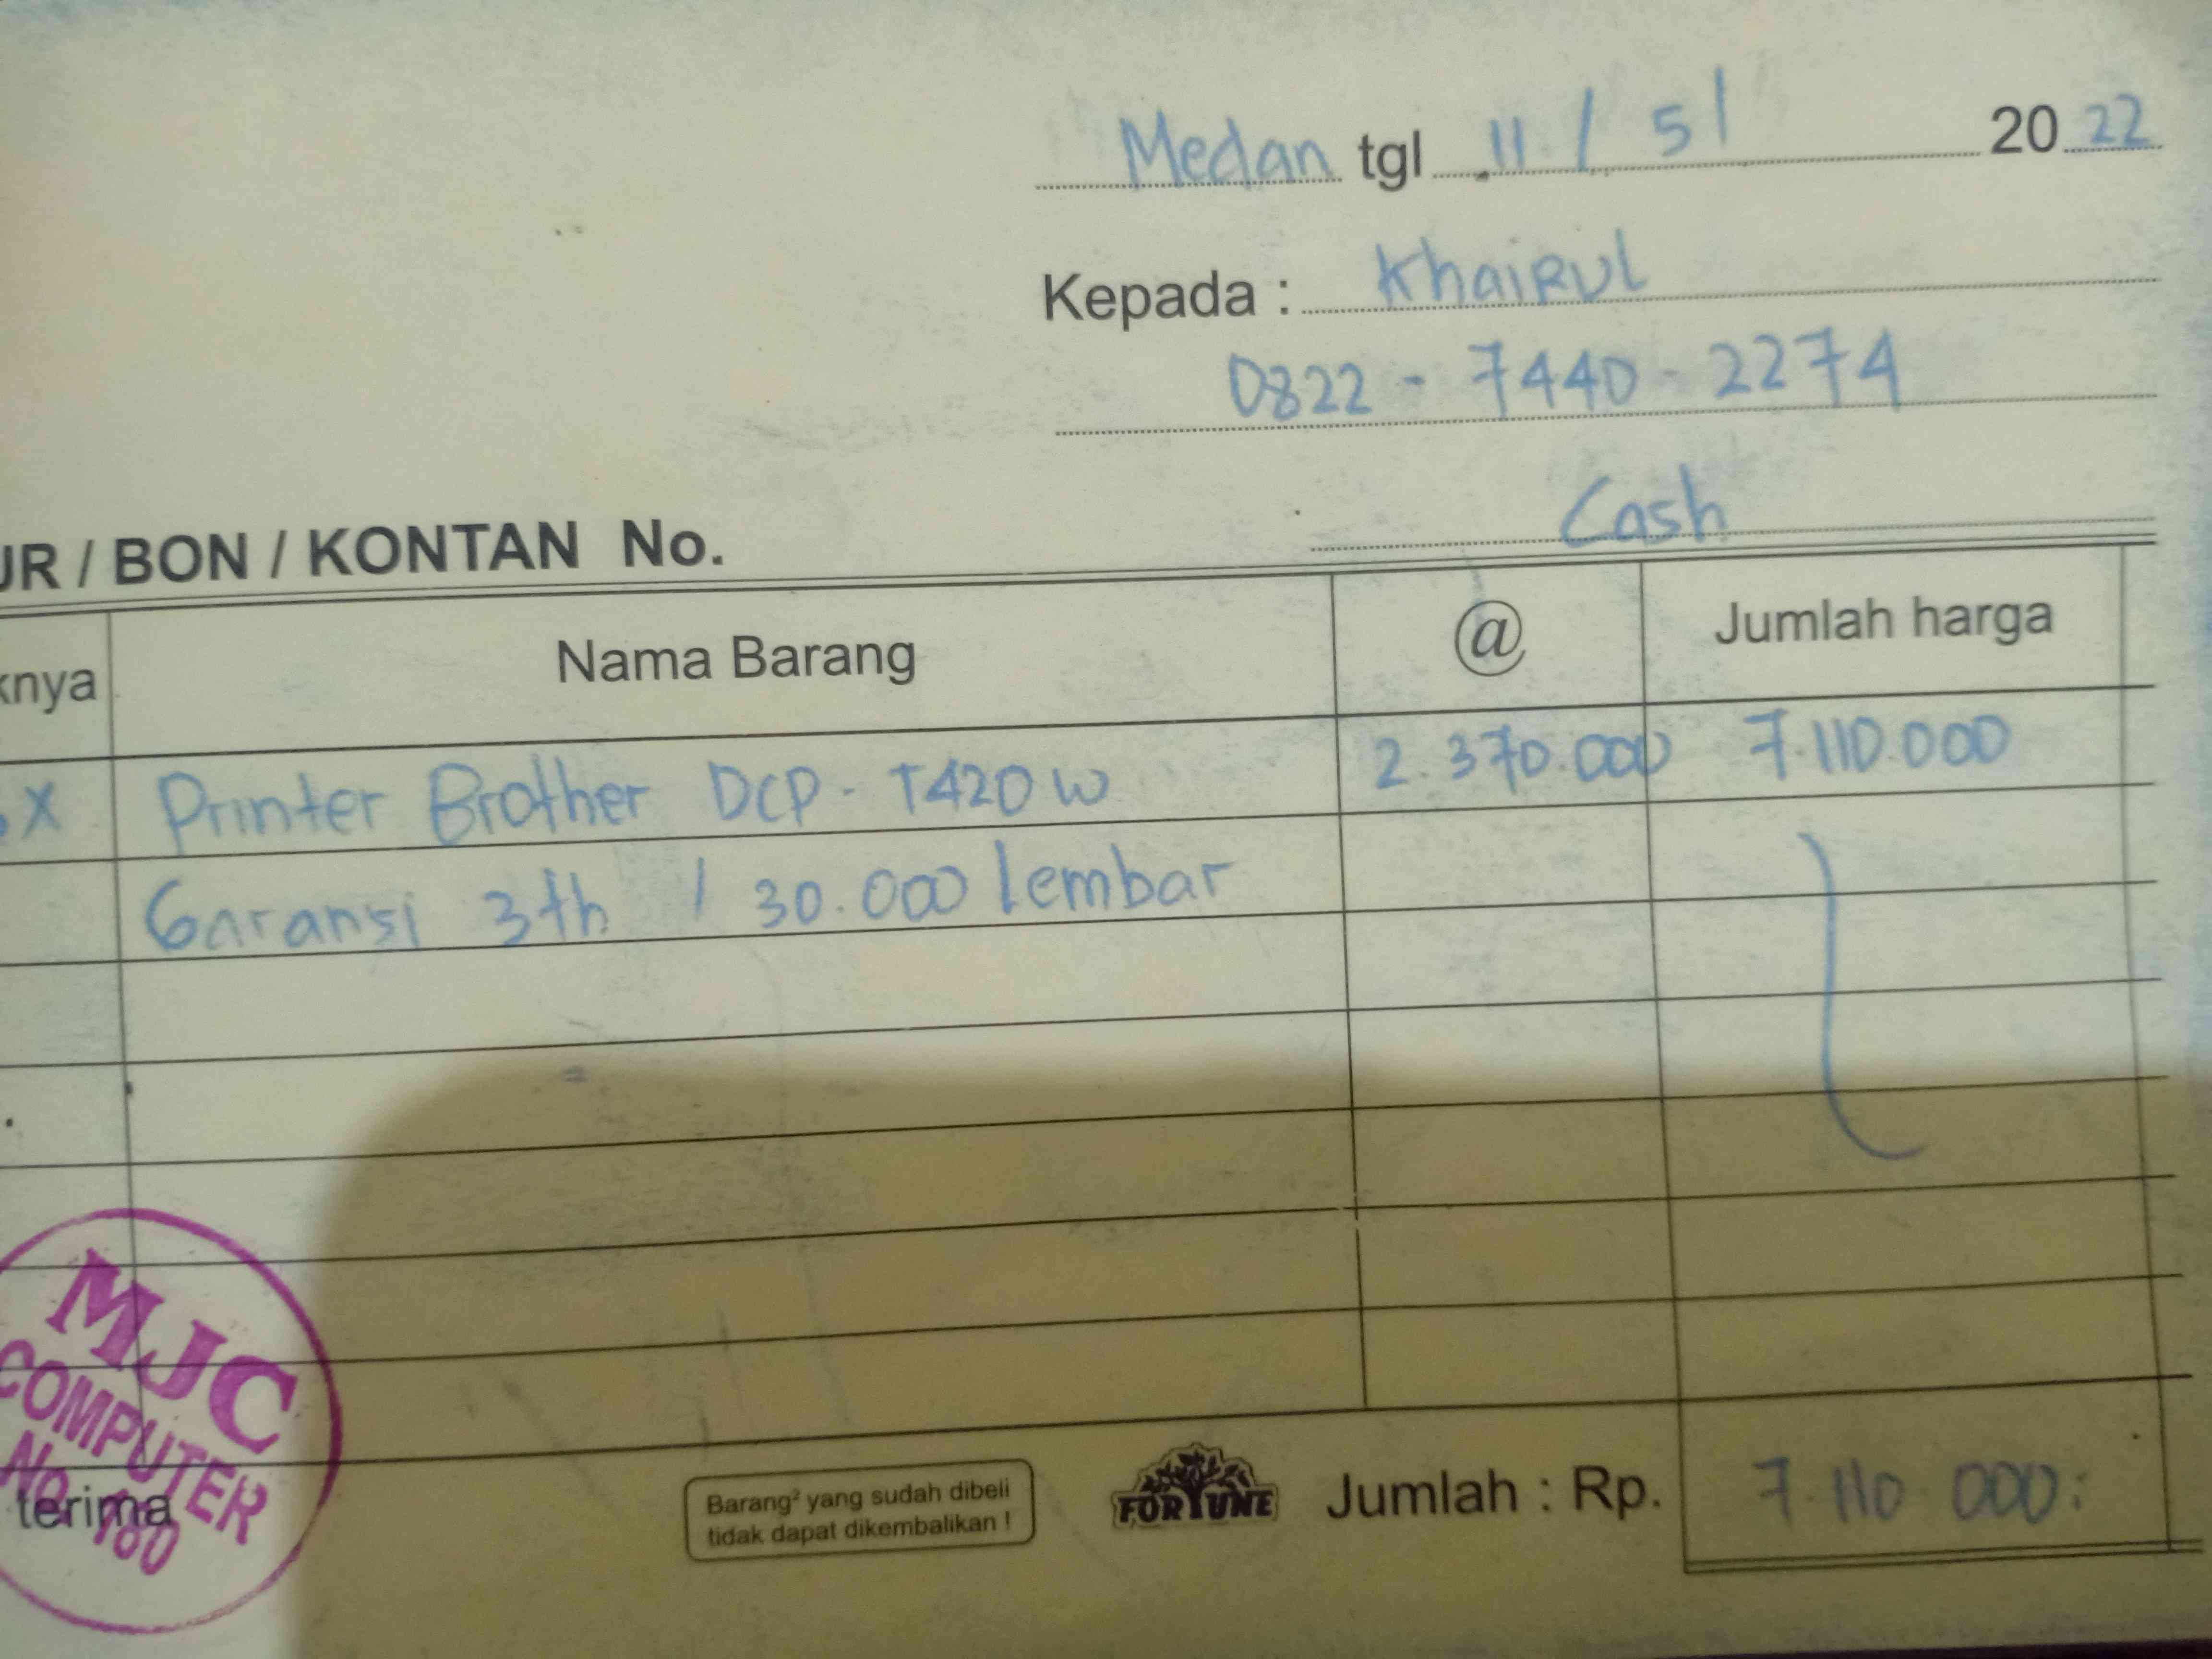 Medan tgl 11 / 5 / 2022
Kepada : Khairul
0822 - 7440 - 2274
Cash
UR / BON / KONTAN No.
knya Nama Barang @ Jumlah harga
X Printer Brother DCP - T420 W 2.370.000 7.110.000
Garansi 3th / 30.000 lembar
MJC
COMPUTER
No. 180
terima
Barang² yang sudah dibeli
tidak dapat dikembalikan !
FORTUNE
Jumlah : Rp. 7.110.000: